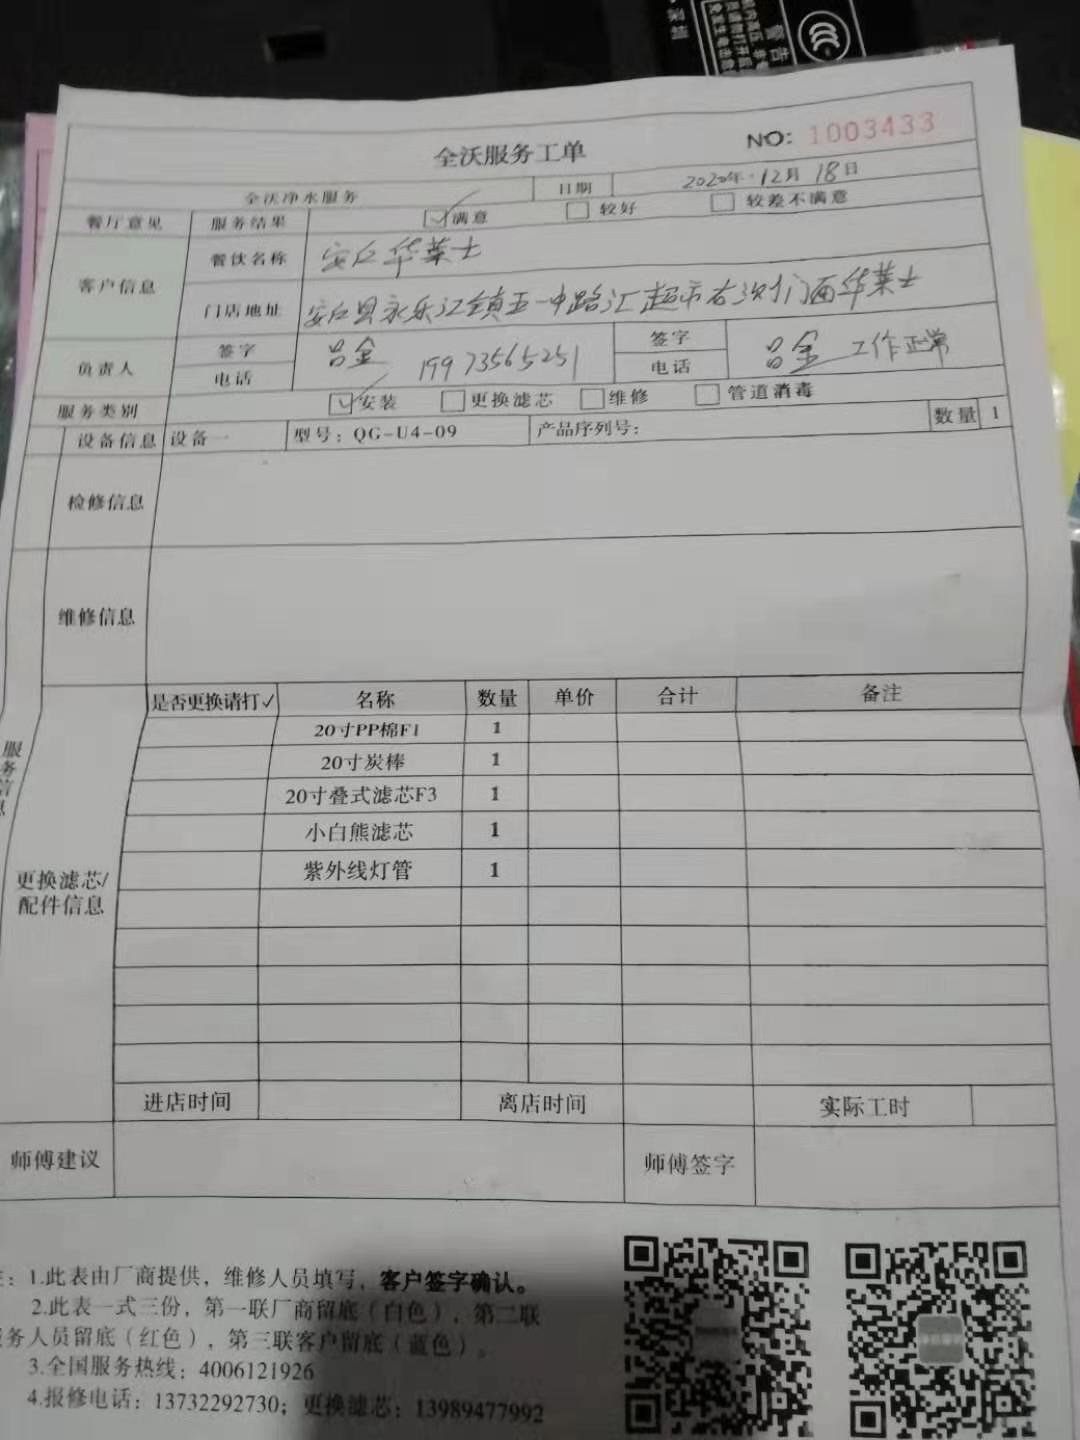 深圳
警告
全沃服务工单
NO: 1003433
全沃净水服务 日期 2020年·12月18日
餐厅意见 服务结果 ☑满意 □ 较好 □ 较差不满意
客户信息 餐饮名称 安仁华莱士
门店地址 安仁县永乐江镇五一中路汇超市右次门面华莱士
负责人 签字 吕金 签字 吕金 工作正常
电话 19973565251 电话
服务类别 ☑安装 □更换滤芯 □维修 □ 管道消毒
服务信息
设备信息 设备一 型号：QG-U4-09 产品序列号： 数量 1
检修信息
维修信息
更换滤芯/
配件信息
是否更换请打✓ 名称 数量 单价 合计 备注
20寸PP棉F1 1
20寸炭棒 1
20寸叠式滤芯F3 1
小白熊滤芯 1
紫外线灯管 1
进店时间 离店时间 实际工时
师傅建议 师傅签字
：1.此表由厂商提供，维修人员填写，客户签字确认。
2.此表一式三份，第一联厂商留底（白色），第二联
务人员留底（红色），第三联客户留底（蓝色）。
3.全国服务热线：4006121926
4.报修电话：13732292730；更换滤芯：13989477992